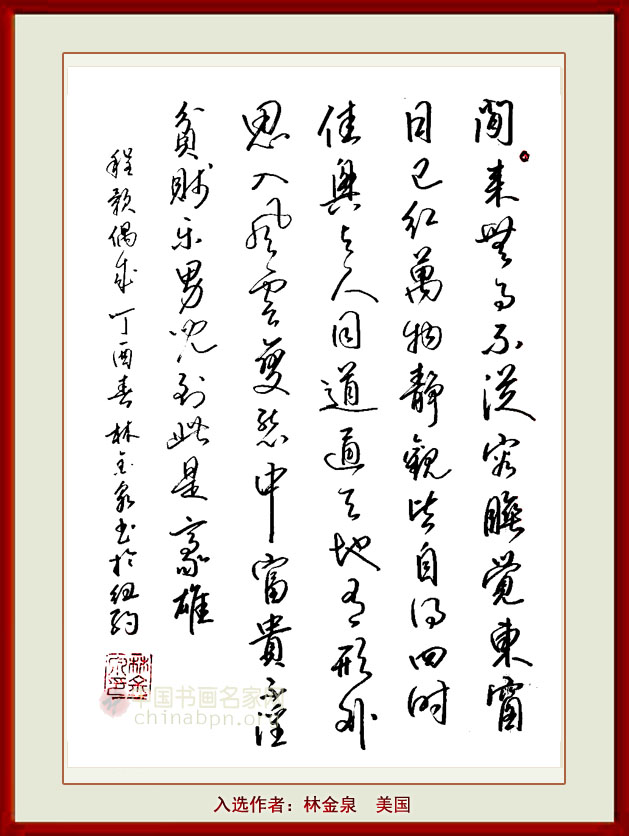 閒来無事不從容睡覺東窗
日已紅萬物靜觀皆自得四時
佳興与人同道通天地有形外
思入風雲變態中富貴不淫
貧賤乐男児到此是豪雄
程颢偶成丁酉春林金泉书於纽约
林金泉印
中国书画名家网
入选作者：林金泉 美国